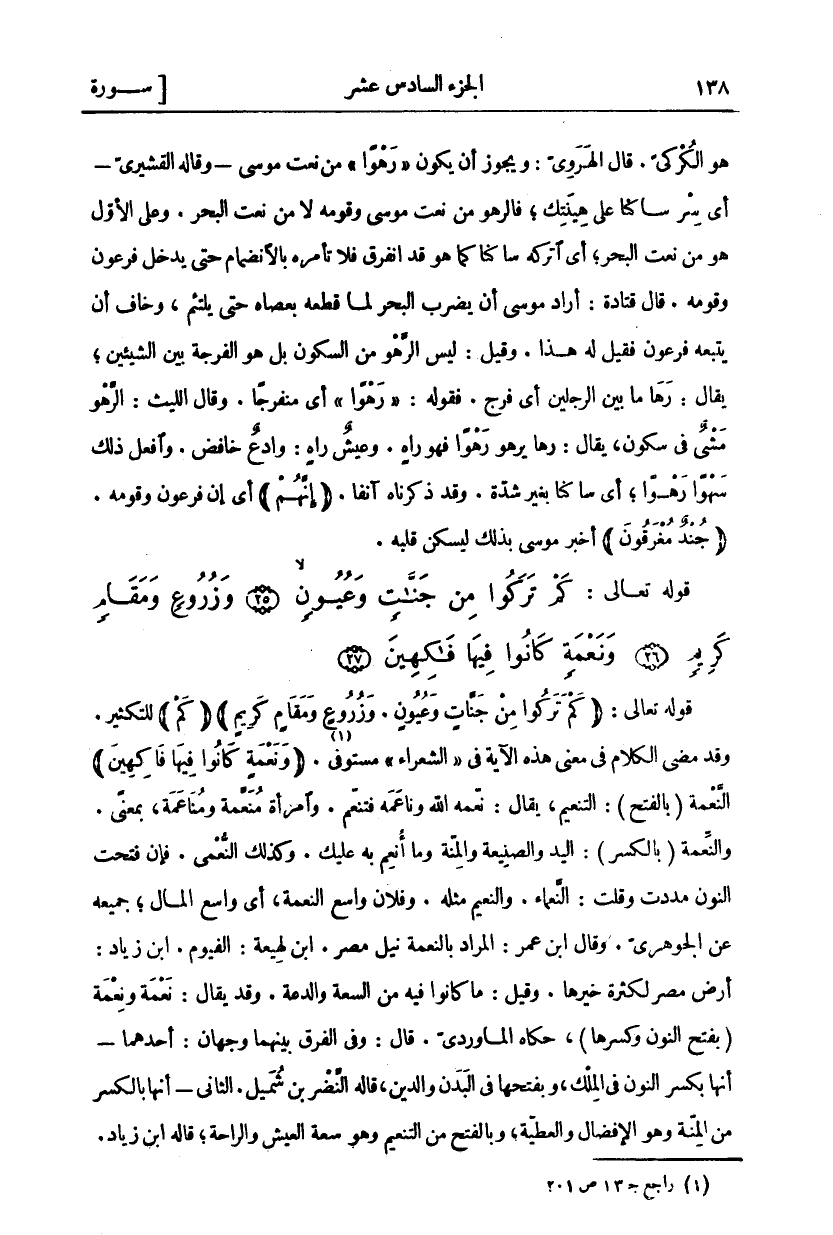 ١٣٨ الجزء السادس عشر [ ســـورة
هو الكُرْكىّ . قال الهَرَوِىّ : ويجوز أن يكون « رَهْوًا » من نعت موسى — وقاله القشيرىّ —
أى سِرْ ســاكنا على هِينَتِك ؛ فالرهو من نعت موسى وقومه لا من نعت البحر . وعلى الأوّل
هو من نعت البحر؛ أى آتركه ساكنا كما هو قد انفرق فلا تأمره بالآنضمام حتى يدخل فرعون
وقومه . قال قتادة : أراد موسى أن يضرب البحر لمــا قطعه بعصاه حتى يلتئم ، وخاف أن
يتبعه فرعون فقيل له هــذا . وقيل : ليس الرَّهْو من السكون بل هو الفرجة بين الشيئين ؛
يقال : رَهَا ما بين الرجلين أى فرج . فقوله : « رَهْوًا » أى منفرجًا . وقال الليث : الرَّهْو
مَشْىٌ فى سكون، يقال : رها يرهو رَهْوًا فهو راهٍ . وعيشٌ راهٍ : وادعٌ خافض . وآفعل ذلك
سَهْوًا رَهْــوًا ؛ أى ساكنا بغير شدّة . وقد ذكرناه آنفا . ﴿ إِنَّهُــمْ ﴾ أى إن فرعون وقومه .
﴿ جُنْدٌ مُغْرَقُونَ ﴾ أخبر موسى بذلك ليسكن قلبه .
قوله تعــالى : كَمْ تَرَكُوا۟ مِن جَنَّـٰتٍ وَعُيُــونٍ ﴿٢٥﴾ وَزُرُوعٍ وَمَقَــامٍ
كَرِيمٍ ﴿٢٦﴾ وَنَعْمَةٍ كَانُوا۟ فِيهَا فَـٰكِهِينَ ﴿٢٧﴾
قوله تعالى : ﴿ كَمْ تَرَكُوا مِنْ جَنَّاتٍ وَعُيُونٍ . وَزُرُوعٍ وَمَقَامٍ كَرِيمٍ ﴾ ﴿ كَمْ ﴾ للتكثير .
وقد مضى الكلام فى معنى هذه الآية فى « الشعراء » مستوفى (١) . ﴿ وَنَعْمَةٍ كَانُوا فِيهَا فَاكِهِينَ ﴾
النَّعْمة ( بالفتح ) : التنعيم، يقال : نعّمه الله وناعَمَه فتنعّم . وآمرأة مُنَعَّمة ومُنَاعَمَة، بمعنًى .
والنِّعمة ( بالكسر ) : اليد والصنيعة والمِنّة وما أُنعِم به عليك . وكذلك النُّعْمى . فإن فتحت
النون مددت وقلت : النَّعماء . والنعيم مثله . وفلان واسع النعمة، أى واسع المــال ؛ جميعه
عن الجوهرىّ . وقال ابن عمر : المراد بالنعمة نيل مصر . ابن لَهِيعة : الفيوم . ابن زياد :
أرض مصر لكثرة خيرها . وقيل : ما كانوا فيه من السعة والدعة . وقد يقال : نَعْمَة ونِعْمَة
( بفتح النون وكسرها ) ، حكاه المــاوردىّ . قال : وفى الفرق بينهما وجهان : أحدهمــا —
أنها بكسر النون فى المِلْك، وبفتحها فى البَدَن والدين، قاله النَّضْر بن شُمَيل . الثانى — أنها بالكسر
من المِنّة وهو الإفضال والعطيّة، وبالفتح من التنعيم وهو سعة العيش والراحة؛ قاله ابن زياد .
(١) راجع جـ ١٣ ص ٢٠١